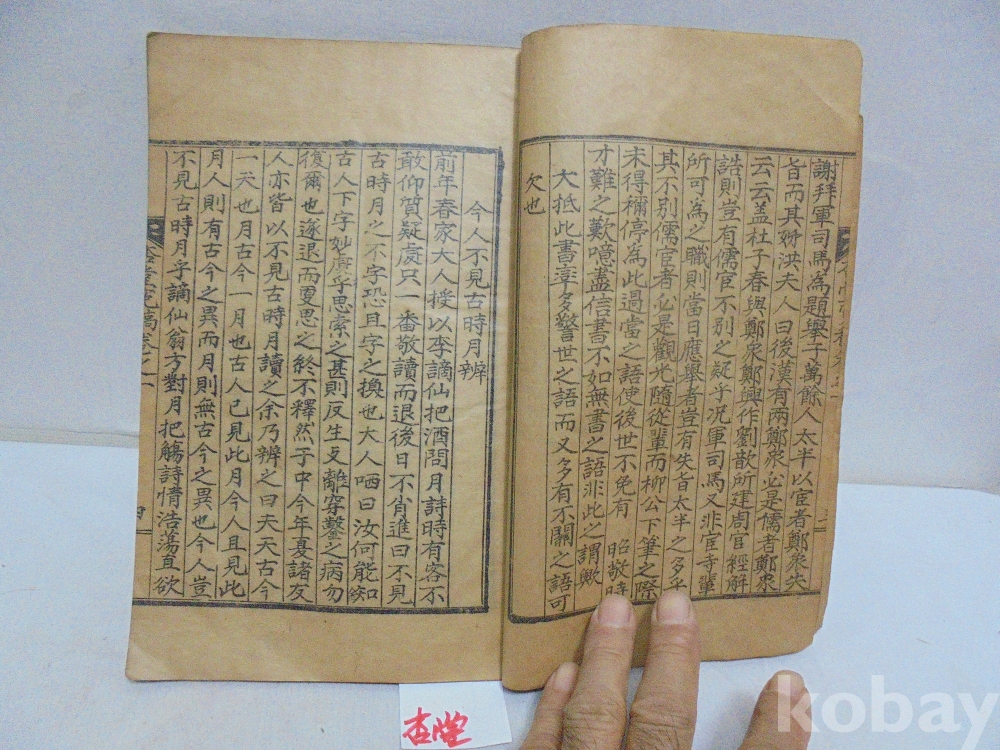 謝拜軍司馬為題舉子萬餘人太半以宦者鄭衆失
旨而其姉洪夫人曰後漢有兩鄭衆必是儒者鄭衆
云云盖杜子春與鄭衆鄭興作劉歆所建周官經解
誥則豈有儒宦不別之疑乎况軍司馬又非宦寺輩
所可為之職則當日應舉者豈有失旨太半之多乎
其不別儒宦者必是觀光隨從輩而柳公下筆之際
未得稱停為此過當之語使後世不免有 昭敬時
才難之歎噫盡信書不如無書之語非此之謂歟
大抵此書率多警世之語而又多有不關之語可
欠也
今人不見古時月辨
前年春家大人授以李謫仙把酒問月詩時有客不
敢仰質疑處只一番敬讀而退後日不肖進曰不見
古時月之不字恐且字之換也大人哂曰汝何能知
古人下字妙處乎思索之甚則反生支離穿鑿之病勿
復爾也遂退而更思之終不釋然于中今年夏諸友
人亦皆以不見古時月讀之余乃辨之曰夫天古今
一天也月古今一月也古人已見此月今人且見此
月人則有古今之異而月則無古今之異也今人豈
不見古時月乎謫仙翁方對月把觴詩情浩蕩直欲
四
杏堂
kobay